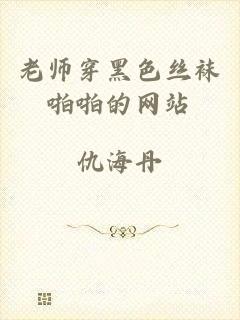 老师穿黑色丝袜
啪啪的网站
仇海丹